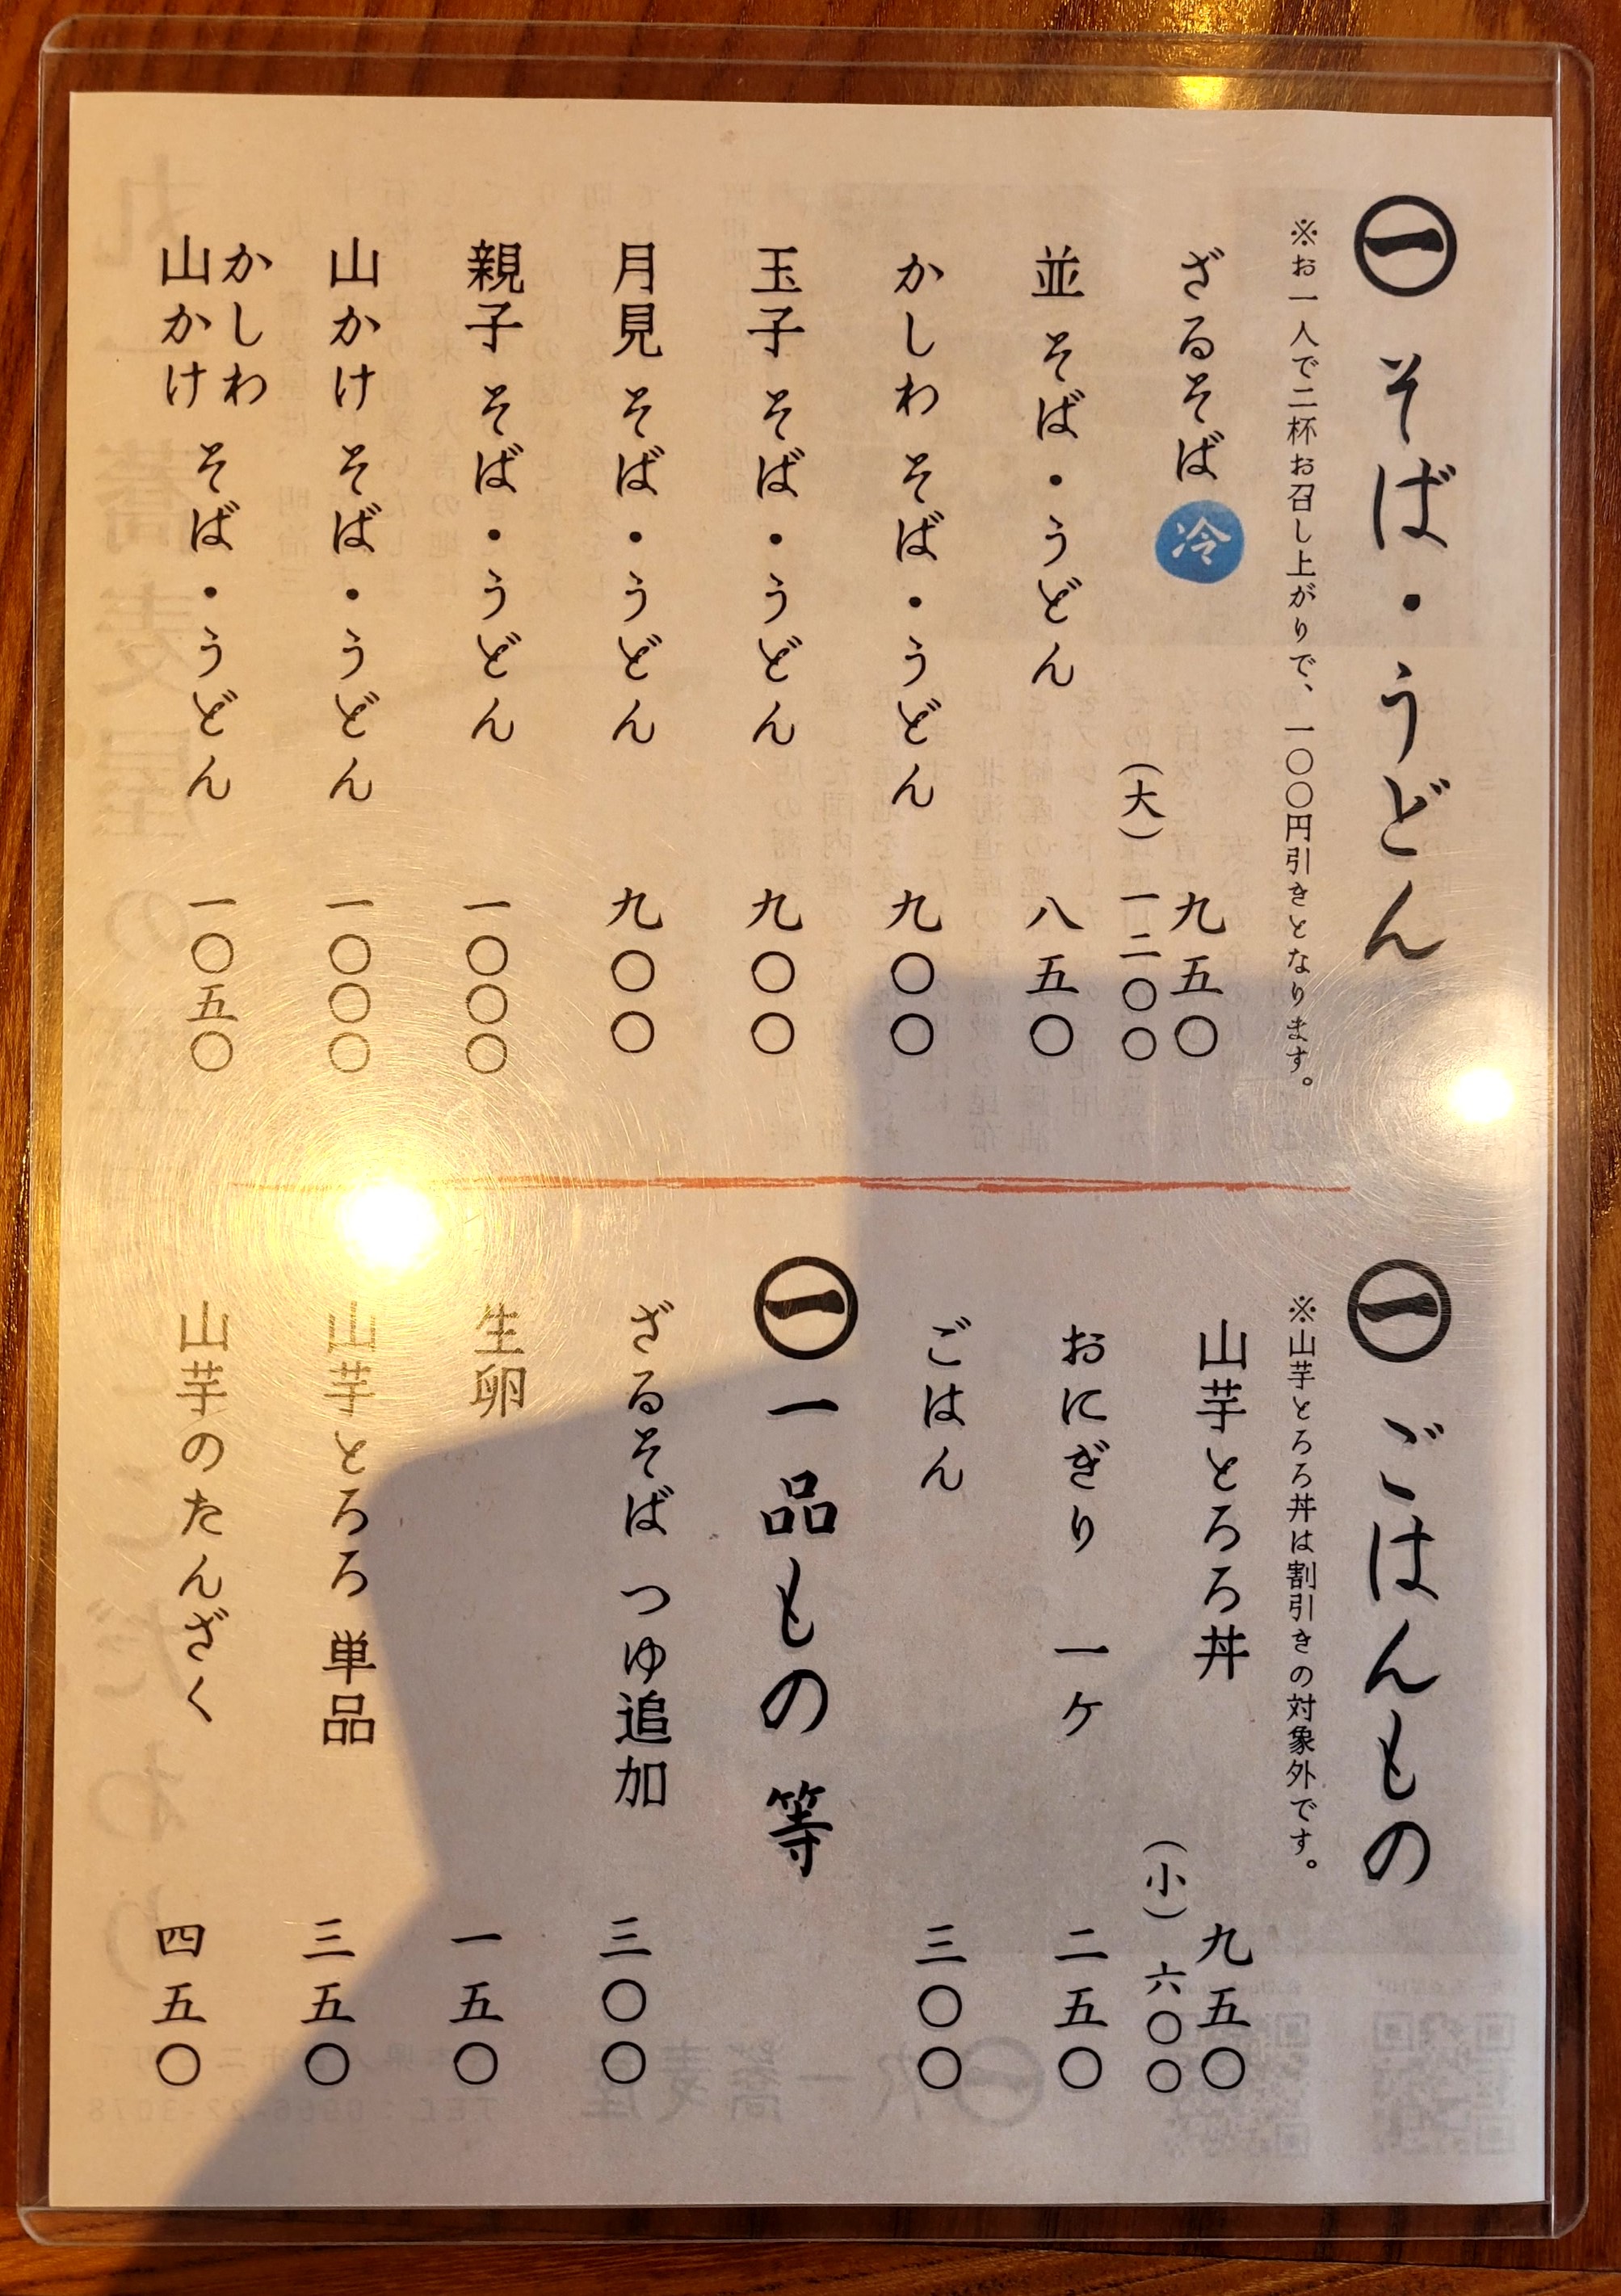 ㊀ そば・うどん
※お一人で二杯お召し上がりで、一〇〇円引きとなります。
ざるそば 冷 九五〇
（大）一二〇〇
並 そば・うどん 八五〇
かしわ そば・うどん 九〇〇
玉子 そば・うどん 九〇〇
月見 そば・うどん 九〇〇
親子 そば・うどん 一〇〇〇
山かけ そば・うどん 一〇〇〇
かしわ
山かけ そば・うどん 一〇五〇
㊀ ごはんもの
※山芋とろろ丼は割引きの対象外です。
山芋とろろ丼 九五〇
（小）六〇〇
おにぎり 一ケ 二五〇
ごはん 三〇〇
㊀ 一品もの 等
ざるそば つゆ追加 三〇〇
生卵 一五〇
山芋とろろ 単品 三五〇
山芋のたんざく 四五〇